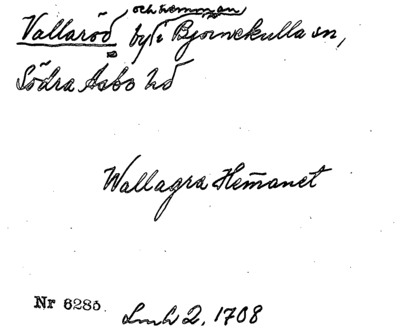 och hemman
Vallaröd by i Björnekulla sn,
Södra Åsbo hd
Wallagra Hemanet
Nr 6285.
Lmh 2, 1708